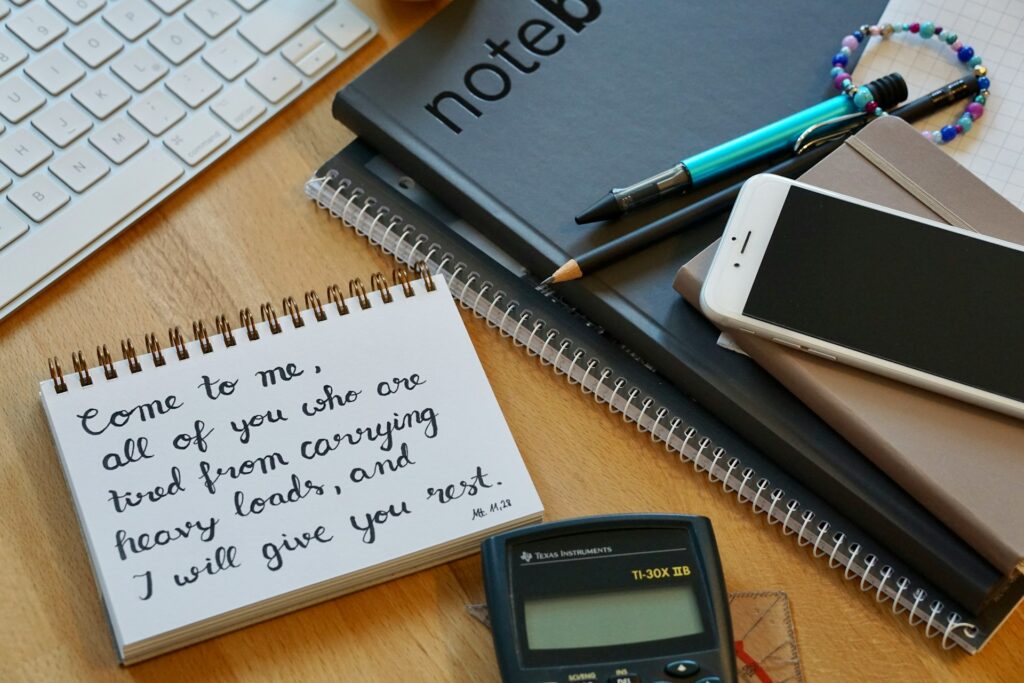 9
O
P
Ö
L
I
U
J
K
H
N
M
B
command
noteb
Come to me,
all of you who are
tired from carrying
heavy loads, and
I will give you rest.
Mt. 11,28
TEXAS INSTRUMENTS
TI-30X IIB
SCI/ENG
INS
DEL